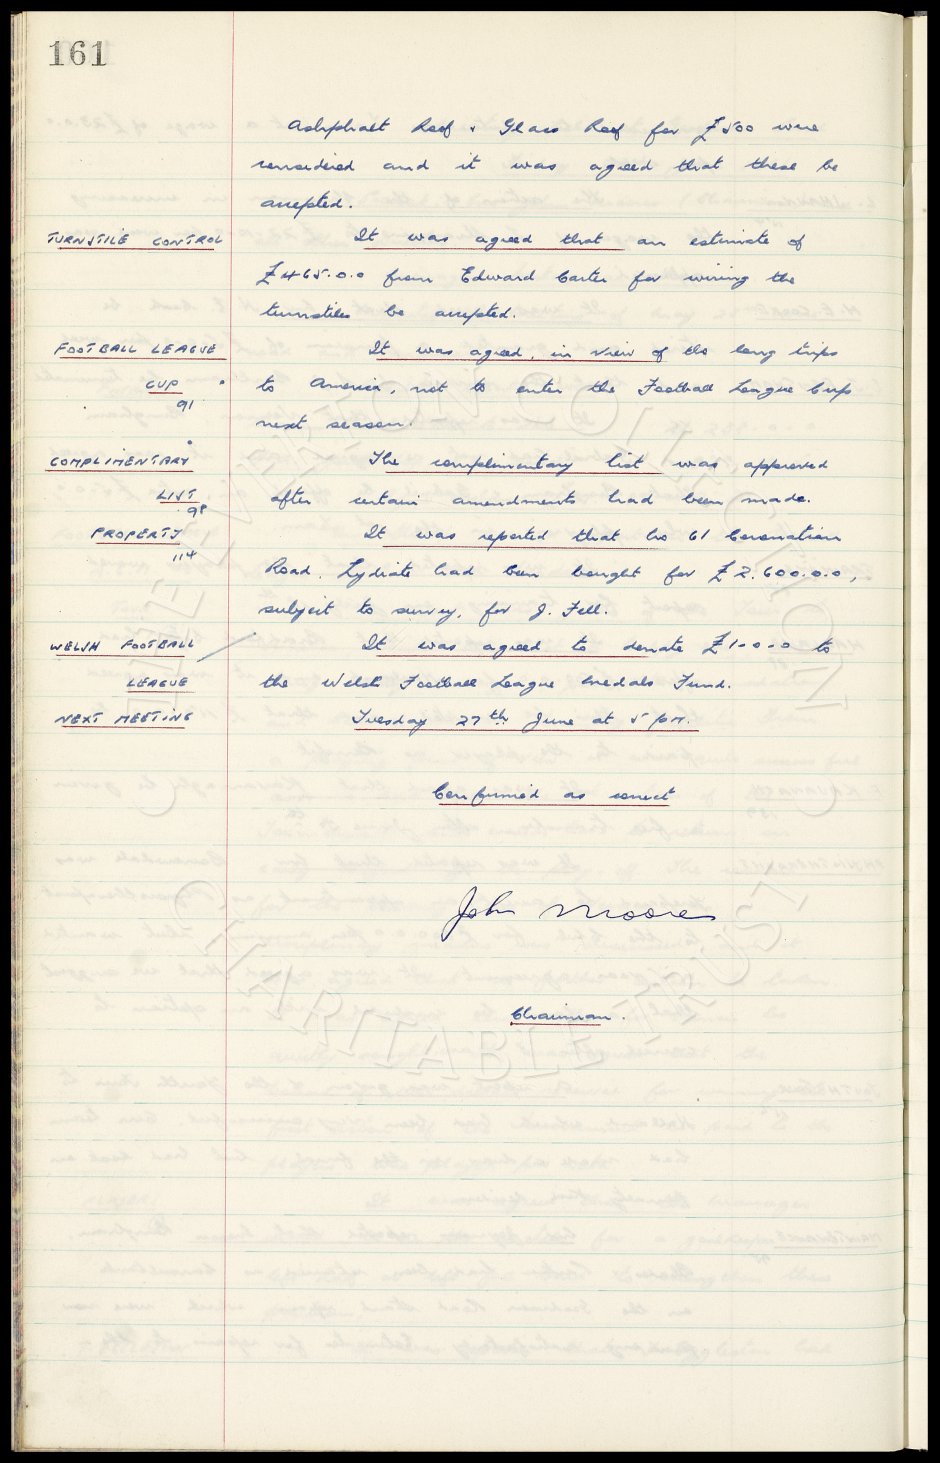 161
Ashphalt Roof & Glass Roof for £500 were
considered and it was agreed that these be
accepted.
TURNSTILE CONTROL It was agreed that an estimate of
£465.0.0 from Edward Carter for wiring the
turnstiles be accepted.
FOOTBALL LEAGUE It was agreed, in view of the long trips
CUP to America, not to enter the Football League Cup
91
next season.
COMPLIMENTARY The complimentary list was approved
LIST after certain amendments had been made.
98
PROPERTY It was reported that No 61 Coronation
114
Road, Lydiate had been bought for £2,600.0.0,
subject to survey, for J. Fell.
WELSH FOOTBALL It was agreed to donate £10-0-0 to
LEAGUE the Welsh Football League Medals Fund.
NEXT MEETING Tuesday 27th June at 5 p.m.
Confirmed as correct
John Moores
Chairman.
THE EVERTON COLLECTION
CHARITABLE TRUST